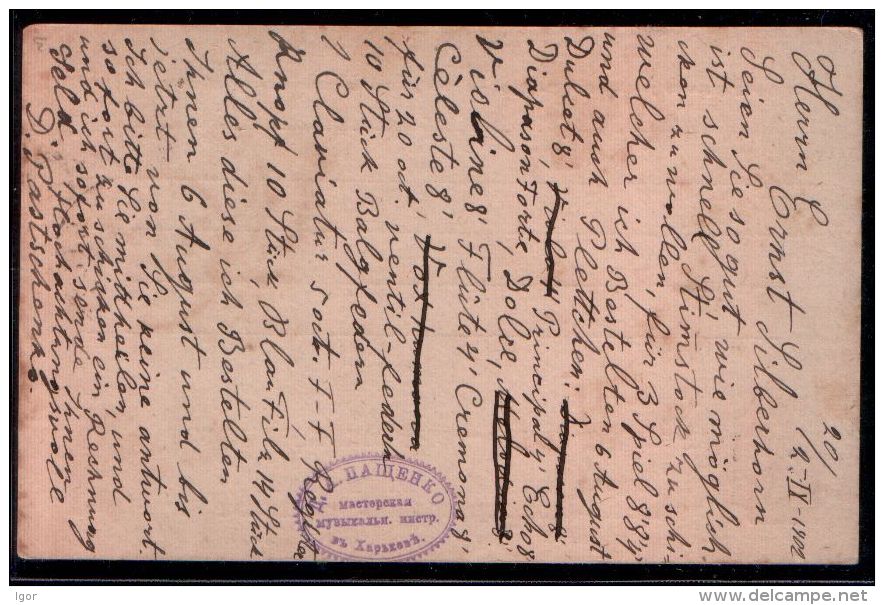 20/
2.IX-1902
Herrn Ernst Silberhorn
Seien Sie so gut wie möglich
ist schnell Stimstock zu schi-
cken zu wollen, für 3 Spiel 8'8'4'
welcher ich Bestelten 6 August
und auch Plettchen:
Dulset 8', Principal 4' Echo 8'
Diapason Forte, Dolce,
Violine 8' Flûte 4' Cremona 8'
Cèleste 8'
für 20 oct. ventil-federn
10 Stück Balgfedern
1 Claviatur 5 oct. F-F
Knopf 10 Stück, Blau Filz 14 Stück
Alles diese ich Bestelten
Ihnen 6 August und bis
jetzt von Sie keine antwort.
Ich bitte Sie mittheilen und
sofort zu schicken ein Rechnung
und ich sofort sende Ihnen
Geld. Hochachtungsvoll
D. Pastschenko.
ПАЩЕНКО
мастерская
музыкальн. инстр.
въ Харьковѣ.
Igor
http://www.delcampe.net